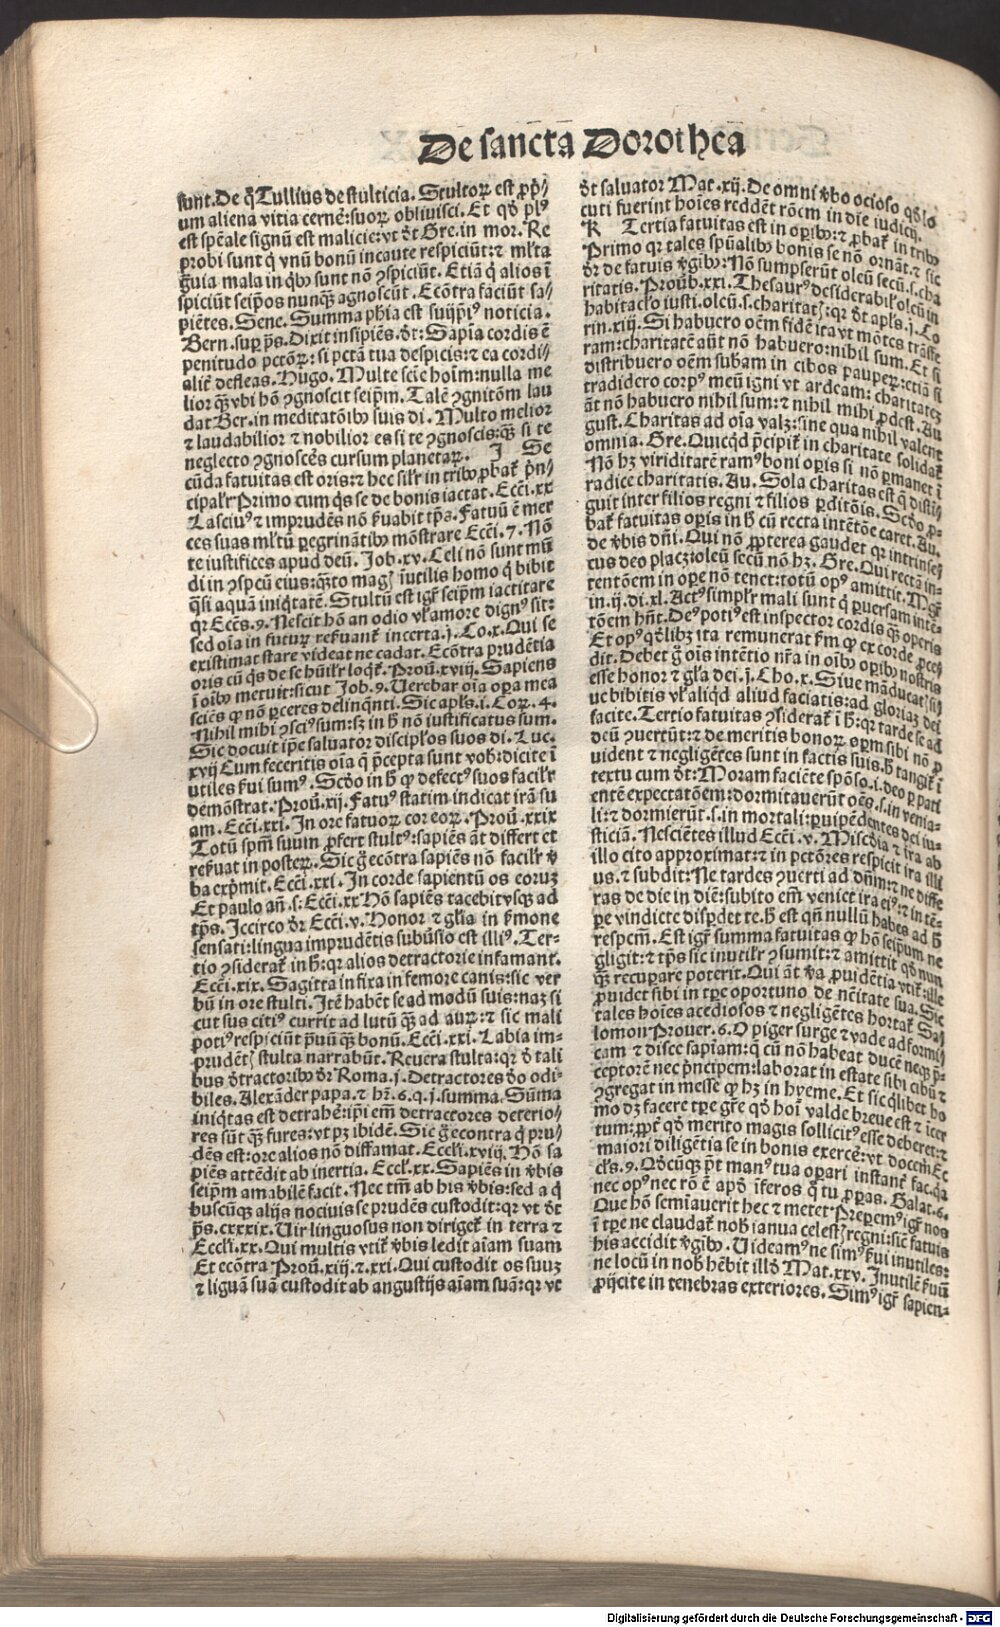 De sancta Dorothea
sunt. De q̈ Tullius de stulticia. Stultoꝝ est ꝓp̄ꝫ/
um aliena vitia cernẽ: suoꝝ obliuisci. Et qd̓ plꝰ
est spẽale signũ est malicie: vt d̓t Gre. in mor. Re
probi sunt q̇ vnũ bonũ incaute respiciũt: ⁊ ml̓ta
grauia mala in qͥbꝰ sunt nõ ꝯspiciũt. Etiã q̇ alios ĩ
spiciũt seip̄os nunqꝫ agnoscũt. Ecõtra faciũt sa/
piẽtes. Sene. Summa phia est suiip̄iꝰ noticia.
Bern. sup̱ p̄s. Dixit insipiẽs. d̓t: Sapĩa cordis ẽ
penitudo pctõꝝ: si pctã tua despicis: ⁊ ea cordi/
alit̓ defleas. Hugo. Multe sciẽ hoĩm: nulla me
lior qꝫ vbi hõ ꝯgnoscit seip̄m. Talẽ ꝯgnitõm lau
dat Ber. in meditatõibꝰ suis di. Multo melior
⁊ laudabilior ⁊ nobilior es si te ꝯgnoscis: qꝫ si te
neglecto ꝯgnoscẽs cursum planetaꝝ. I Se
cũda fatuitas est oris: ⁊ hec sil̓r in tribꝰ ꝓbat̓ p̄n/
cipal̓r Primo cum qͥs se de bonis iactat. Ecci. xx
Lasciuꝰ ⁊ imprudẽs nõ ẜuabit tp̄s. Fatuũ ẽ mer
ces suas ml̓tũ p̱egrinãtibꝰ mõstrare Ecci. 7. Nõ
te iustifices apud deũ. Job. xv. Celi nõ sunt mũ
di in ꝯspcũ eius: qͣꝫto magꝭ ĩutilis homo q̇ bibit
q̃si aquã iniqͥtatẽ. Stultũ est igr̓ seip̄m iactitare
qꝛ Eccs. 9. Nescit hõ an odio vl̓ amore dignꝰ sit:
sed oĩa in futuꝝ reẜuant̓ incerta. j. Co. x. Qui se
existimat stare videat ne cadat. Ecõtra prudẽtia
oris cũ qͥs de se hũil̓r loqͥt̓. Prou̓. xviij. Sapiens
ĩ oĩbꝰ metuit: sicut Job. 9. Uerebar oĩa opa mea
sciẽs ꝙ nõ p̱ceres delinqñti. Sic apl̓s. i. Coꝝ. 4.
Nihil mihi ꝯsciꝰ sum: sꝫ in h̓ nõ iustificatus sum.
Sic docuit ip̄e saluator discipl̓os suos di. Luc.
xvij Cum feceritis oĩa q̄ p̄cepta sunt vob̓: dicite ĩ
utiles ẜui sumꝰ. Scd̓o in h̓ ꝙ defectꝰ suos facil̓r
demõstrat. Prou̓. xij. Fatuꝰ statim indicat irã su
am. Ecci. xxi. In ore fatuoꝝ cor eoꝝ. Prou̓. xxix
Totũ spm̄ suum ꝓfert stultꝰ: sapiẽs ãt differt et
reẜuat in posteꝝ. Sic g̈ ecõtra sapiẽs nõ facil̓r v̓
ba exp̄mit. Ecci. xxi. In corde sapientũ os coruꝫ
Et paulo añ. s. Ecci. xx Hõ sapiẽs tacebit vsqꝫ ad
tp̄s. Jccirco d̓r Ecci. v. Honor ⁊ gl̓ia in ẜmone
sensati: lingua imprudẽtis subũsio est illiꝰ. Ter-
tio ꝯsiderat̓ in h̓: qꝛ alios detractorie infamant.
Ecci. xix. Sagitta infixa in femore canis: sic ver
bũ in ore stulti. Itẽ habẽt se ad modũ suis: naꝫ si
cut sus citiꝰ currit ad lutũ qꝫ ad auꝝ: ⁊ sic mali
potiꝰ respiciũt ꝑuũ qꝫ bonũ. Ecci. xxi. Labia im-
prudẽtꝭ stulta narrabũt. Reuera stulta: qꝛ d̓ tali
bus d̓tractoribꝰ d̓r Roma. j. Detractores d̓o odi-
biles. Alexãder papa. ⁊ hr̃. 6. q. j. summa. Sũma
iniqͥtas est detrahẽ: ip̄i em̃ detractores deterio/
res sũt qꝫ fures: vt pꝫ ibidẽ. Sic g̈ econtra q̇ pru/
dẽs est: ore alios nõ diffamat. Eccl̓i. xviij. Hõ sa
piẽs attẽdit ab inertia. Eccl̓. xx. Sapiẽs in v̓bis
seip̄m amabilẽ facit. Nec tm̃ ab his v̓bis: sed a q̇
buscũqꝫ alijs nociuis se prudẽs custodit: qꝛ vt d̓t
p̄s. cxxxix. Uir linguosus non diriget̓ in terra ⁊
Eccl̓i. xx. Qui multis vtit̓ v̓bis ledit aĩam suam
Et ecõtra Prou̓. xiij. ⁊. xxi. Qui custodit os suuꝫ
⁊ liguã suã custodit ab angustijs aĩam suã: qꝛ vt
d̓t saluator Mat. xij. De omni v̓bo ocioso qd̓ lo
cuti fuerint hoĩes reddẽt rõem in die iudicij.
K Tertia fatuitas est in oꝑibꝰ: ⁊ ꝓbat̓ in tribꝰ
Primo qꝛ tales spũalibꝰ bonis se nõ ornãt. ⁊ sic
d̓r de fatuis v̓gĩbꝰ: Nõ sumpserũt oleũ secũ. s. cha
ritatis. Prou̓b. xxi. Thesaurꝰ desiderabil̓ oleũ in
habitac̓lo iusti. oleũ. s. charitatꝭ: qꝛ d̓t apl̓s. j. Co
rin. xiij. Si habuero oẽm fidẽ ita vt mõtes trãsfe
ram: charitatẽ aũt nõ habuero: nihil sum. Et si
distribuero oẽm subam in cibos pauperꝝ: etiã si
tradidero corpꝰ meũ igni vt ardeam: charitateꝫ
ãt nõ habuero nihil sum: ⁊ nihil mihi ꝓdest. Au
gust. Charitas ad oĩa valꝫ: sine qua nihil valent
omnia. Gre. Quicqͥd p̄cipit̓ in charitate solidat̓
Nõ hꝫ viriditatẽ ramꝰ boni oꝑis si nõ ꝑmanet ĩ
radice charitatis. Au. Sola charitas est q̄ disti/
guit inter filios regni ⁊ filios ꝑditõis. Scd̓o ꝓ-
bat̓ fatuitas oꝑis in h̓ cũ recta intẽtõe caret. Au.
de v̓bis dñi. Qui nõ ꝓpterea gaudet qꝛ intrinseꝯ
cus deo placꝫ: oleũ secũ nõ hꝫ. Gre. Qui rectã in-
tentõem in oꝑe nõ tenet: totũ opꝰ amittit. Mgr̃
in. ij. di. xl. Actꝰ simpl̓r mali sunt q̇ ꝑuersam intẽ-
tõem hñt. Deꝰ potiꝰ est inspector cordis qꝫ oꝑis
Et opꝰ qd̓libꝫ ita remunerat ẜm ꝙ ex corde ꝓce/
dit. Debet g̈ oĩs intẽtio nr̃a in oĩbꝰ oꝑibꝰ nostris
esse honor ⁊ gl̓ia dei. j. Cho. x. Siue mãducatꝭ si/
ue bibitis vl̓ aliqͥd aliud faciatis: ad gloriaꝫ dei
facite. Tertio fatuitas ꝯsiderat̓ ĩ h̓: qꝛ tarde se ad
deũ ꝯuertũt: ⁊ de meritis bonoꝝ oꝑm sibi nõ ꝓ
uident ⁊ negligẽtes sunt in factis suis. h̓ tangit̓ ĩ
textu cum d̓t: Moram faciẽte spõso. i. deo ꝑ pati
entẽ expectatõem: dormitauerũt oẽs. s. in venia-
li: ⁊ dormierũt. s. in mortali: ꝑuipẽdentes dei iu-
sticiã. Nesciẽtes illud Ecci. v. Misc̓dia ⁊ ira ab
illo cito approximat: ⁊ in pctõres respicit ira illi
us. ⁊ subdit: Ne tardes ꝯuerti ad dñm: ⁊ ne diffe
ras de die in diẽ: subito em̃ veniet ira eiꝰ: ⁊ in tẽ-
ꝑe vindicte disp̱det te. h̓ est qñ nullũ habes ad h̓
respcm̃. Est igr̓ summa fatuitas ꝙ hõ seip̄um ne
gligit: ⁊ tp̄s sic inutil̓r ꝯsumit: ⁊ amittit qd̓ nun
qꝫ recuꝑare poterit. Qui ãt v̓a ꝓuidẽtia vtit̓: ille
ꝓuidet sibi in tꝑe oportuno de nẽitate sua. Sic
tales hoĩes acediosos ⁊ negligẽtes hortat̓ Sa/
lomon Prouer. 6. O piger surge ⁊ vade ad formi/
cam ⁊ disce sapiam: q̄ cũ nõ habeat ducẽ neqꝫ p̄-
ceptorẽ nec p̄ncipem: laborat in estate sibi cibũ ⁊
ꝯgregat in messe ꝙ hꝫ in hyeme. Et sic qͥlibet ho
mo dꝫ facere tꝑe gr̃e qd̓ hoĩ valde breue est ⁊ icer
tum: ꝓpt̓ qd̓ merito magis sollicitꝰ esse deberet: ⁊
maiori diligẽtia se in bonis exercẽ: vt docem̓ Ec
cl̓s. 9. Qd̓cũqꝫ p̄t manꝰ tua oꝑari instanẽ fac. qꝛ
nec opꝰ nec rõ ẽ apd̓ iferos q̇ tu ꝓꝑas. Galat. 6.
Que hõ semĩauerit hec ⁊ metet. Preꝑemꝰ igr̓ nos
ĩ tꝑe ne claudat̓ nob̓ ianua celestꝭ regni: sic̃ fatuis
his accidit v̓gĩbꝰ. Uideamꝰ ne simꝰ ẜui inutiles:
ne locũ in nob̓ hẽbit illd̓ Mat. xxv. Inutilẽ ẜuũ
ꝓijcite in tenebras exteriores. Simꝰ igr̓ sapien-
Digitalisierung gefördert durch die Deutsche Forschungsgemeinschaft - DFG